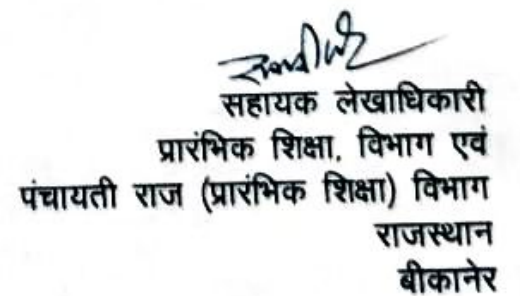 सहायक लेखाधिकारी
प्रारंभिक शिक्षा, विभाग एवं
पंचायती राज (प्रारंभिक शिक्षा) विभाग
राजस्थान
बीकानेर